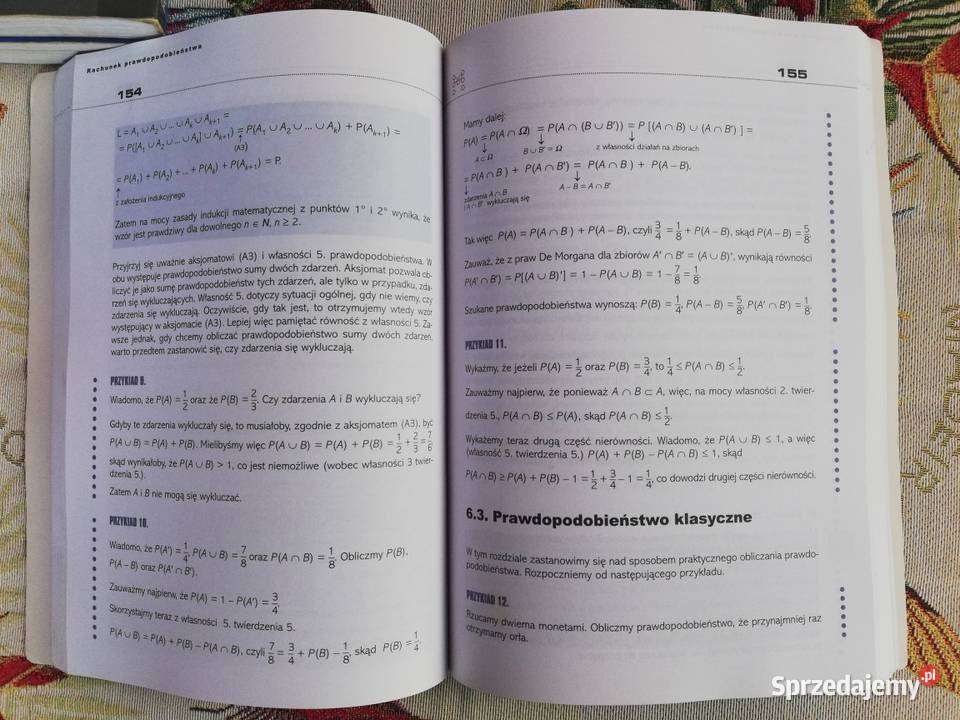 Rachunek prawdopodobieństwa
154
L = A₁ ∪ A₂ ∪ ... ∪ Aₖ ∪ Aₖ₊₁ =
= P([A₁ ∪ A₂ ∪ ... ∪ Aₖ] ∪ Aₖ₊₁) = P(A₁ ∪ A₂ ∪ ... ∪ Aₖ) + P(Aₖ₊₁) =
↑
(A3)
= P(A₁) + P(A₂) + ... + P(Aₖ) + P(Aₖ₊₁) = P.
↑
z założenia indukcyjnego
Zatem na mocy zasady indukcji matematycznej z punktów 1° i 2° wynika, że
wzór jest prawdziwy dla dowolnego n ∈ N, n ≥ 2.
Przyjrzyj się uważnie aksjomatowi (A3) i własności 5. prawdopodobieństwa. W
obu występuje prawdopodobieństwo sumy dwóch zdarzeń. Aksjomat pozwala ob-
liczyć je jako sumę prawdopodobieństw tych zdarzeń, ale tylko w przypadku, zda-
rzeń się wykluczających. Własność 5. dotyczy sytuacji ogólnej, gdy nie wiemy, czy
zdarzenia się wykluczają. Oczywiście, gdy tak jest, to otrzymujemy wtedy wzór
występujący w aksjomacie (A3). Lepiej więc pamiętać równość z własności 5. Za-
wsze jednak, gdy chcemy obliczać prawdopodobieństwo sumy dwóch zdarzeń,
warto przedtem zastanowić się, czy zdarzenia się wykluczają.
PRZYKŁAD 9.
Wiadomo, że P(A) = 1/2 oraz że P(B) = 2/3. Czy zdarzenia A i B wykluczają się?
Gdyby te zdarzenia wykluczały się, to musiałoby, zgodnie z aksjomatem (A3), być
P(A ∪ B) = P(A) + P(B). Mielibyśmy więc P(A ∪ B) = P(A) + P(B) = 1/2 + 2/3 = 7/6
skąd wynikałoby, że P(A ∪ B) > 1, co jest niemożliwe (wobec własności 3 twier-
dzenia 5.).
Zatem A i B nie mogą się wykluczać.
PRZYKŁAD 10.
Wiadomo, że P(A') = 1/4, P(A ∪ B) = 7/8 oraz P(A ∩ B) = 1/8. Obliczmy P(B),
P(A – B) oraz P(A' ∩ B').
Zauważmy najpierw, że P(A) = 1 – P(A') = 3/4.
Skorzystajmy teraz z własności 5. twierdzenia 5.
P(A ∪ B) = P(A) + P(B) – P(A ∩ B), czyli 7/8 = 3/4 + P(B) – 1/8, skąd P(B) = 1/4.
155
Mamy dalej:
P(A) = P(A ∩ Ω) = P(A ∩ (B ∪ B')) = P [(A ∩ B) ∪ (A ∩ B') ] =
↓ ↓ ↓
A ⊂ Ω B ∪ B' = Ω z własności działań na zbiorach
= P(A ∩ B ) + P(A ∩ B') = P(A ∩ B ) + P(A – B).
↓ ↓
zdarzenia A ∩ B A – B = A ∩ B'
i A ∩ B' wykluczają się
Tak więc P(A) = P(A ∩ B ) + P(A – B), czyli 3/4 = 1/8 + P(A – B), skąd P(A – B) = 5/8.
Zauważ, że z praw De Morgana dla zbiorów A' ∩ B' = (A ∪ B)', wynikają równości
P(A' ∩ B') = P[(A ∪ B)'] = 1 – P(A ∪ B) = 1 – 7/8 = 1/8.
Szukane prawdopodobieństwa wynoszą: P(B) = 1/4, P(A – B) = 5/8, P(A' ∩ B') = 1/8.
PRZYKŁAD 11.
Wykażmy, że jeżeli P(A) = 1/2 oraz P(B) = 3/4, to 1/4 ≤ P(A ∩ B) ≤ 1/2.
Zauważmy najpierw, że ponieważ A ∩ B ⊂ A, więc, na mocy własności 2. twier-
dzenia 5., P(A ∩ B) ≤ P(A), skąd P(A ∩ B) ≤ 1/2.
Wykażemy teraz drugą część nierówności. Wiadomo, że P(A ∪ B) ≤ 1, a więc
(własność 5. twierdzenia 5.) P(A) + P(B) – P(A ∩ B) ≤ 1, skąd
P(A ∩ B) ≥ P(A) + P(B) – 1 = 1/2 + 3/4 – 1 = 1/4, co dowodzi drugiej części nierówności.
6.3. Prawdopodobieństwo klasyczne
W tym rozdziale zastanowimy się nad sposobem praktycznego obliczania prawdo-
podobieństwa. Rozpoczniemy od następującego przykładu.
PRZYKŁAD 12.
Rzucamy dwiema monetami. Obliczmy prawdopodobieństwo, że przynajmniej raz
otrzymamy orła.
Sprzedajemy.pl